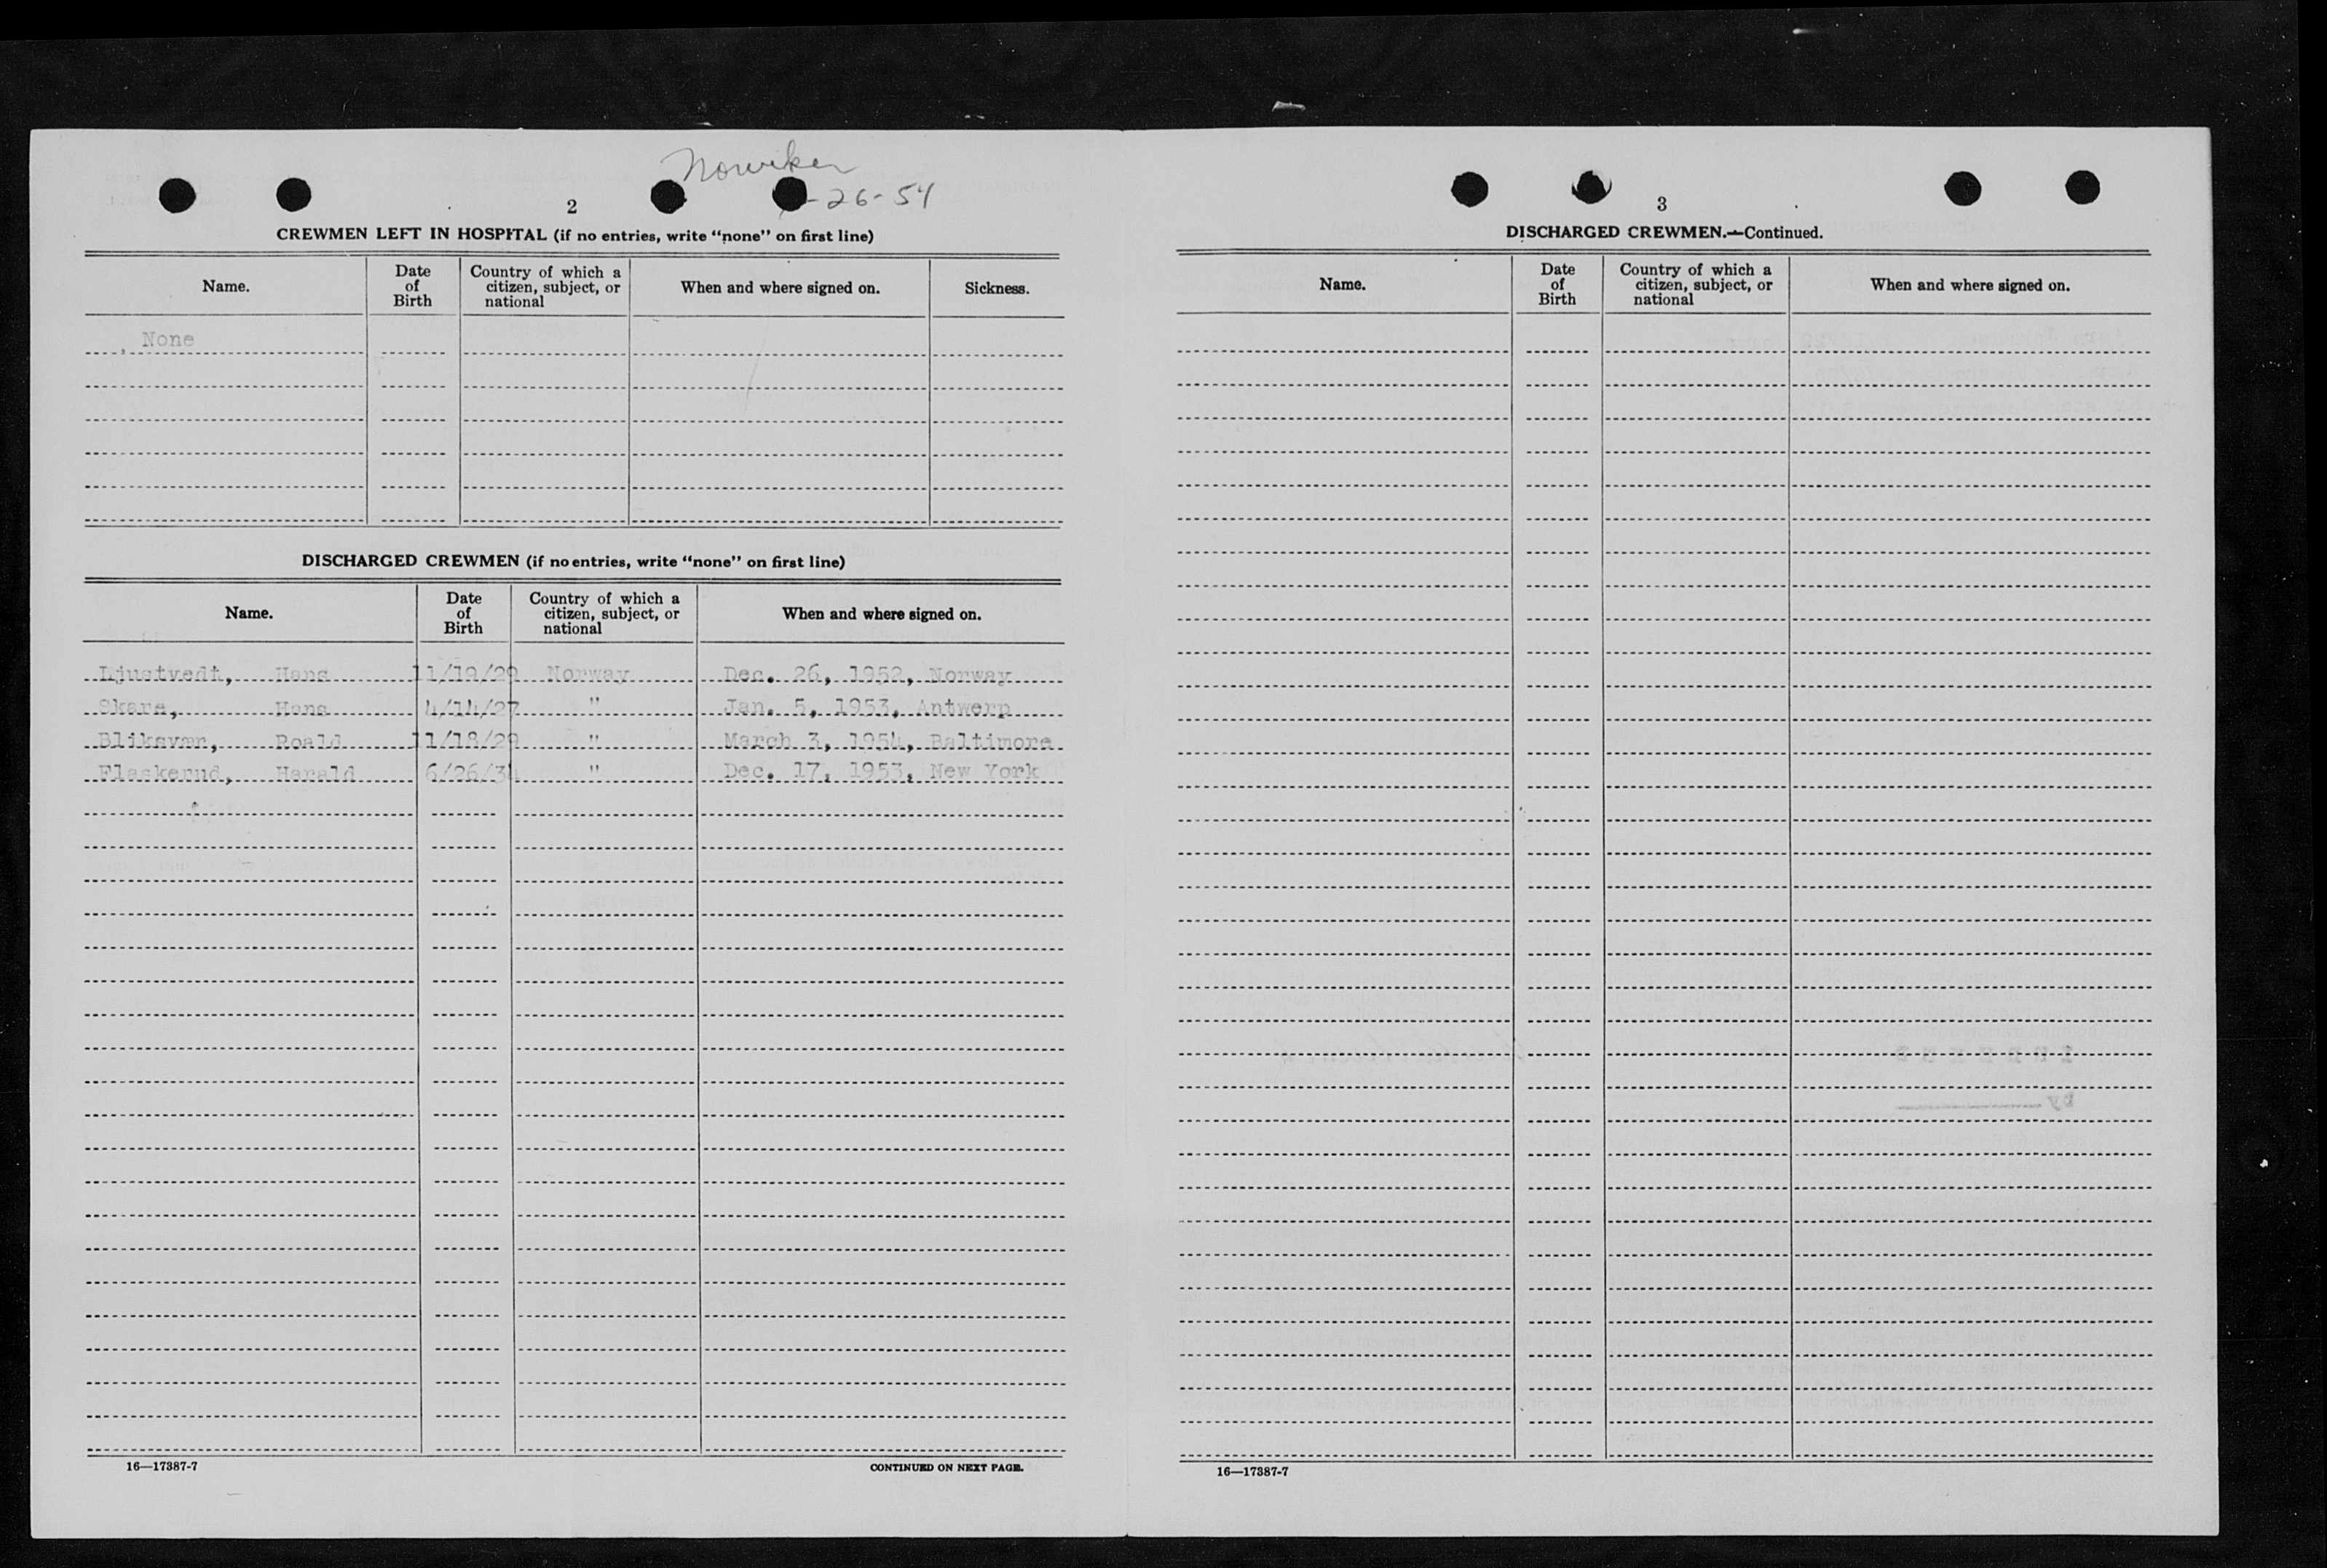 -26-54
2
CREWMEN LEFT IN HOSPITAL (if no entries, write “none” on first line)
Name. Date of Birth Country of which a citizen, subject, or national When and where signed on. Sickness.
None
DISCHARGED CREWMEN (if no entries, write “none” on first line)
Name. Date of Birth Country of which a citizen, subject, or national When and where signed on.
Ljustvedt, Hans 11/19/29 Norway Dec. 26, 1952, Norway
Skare, Hans 4/14/27 " Jan. 5, 1953, Antwerp
Bliksvær, Roald 11/18/29 " March 3, 1954, Baltimore
Flaskerud, Harald 6/26/34 " Dec. 17, 1953, New York
16—17387-7 CONTINUED ON NEXT PAGE.
3
DISCHARGED CREWMEN.—Continued.
Name. Date of Birth Country of which a citizen, subject, or national When and where signed on.
16—17387-7